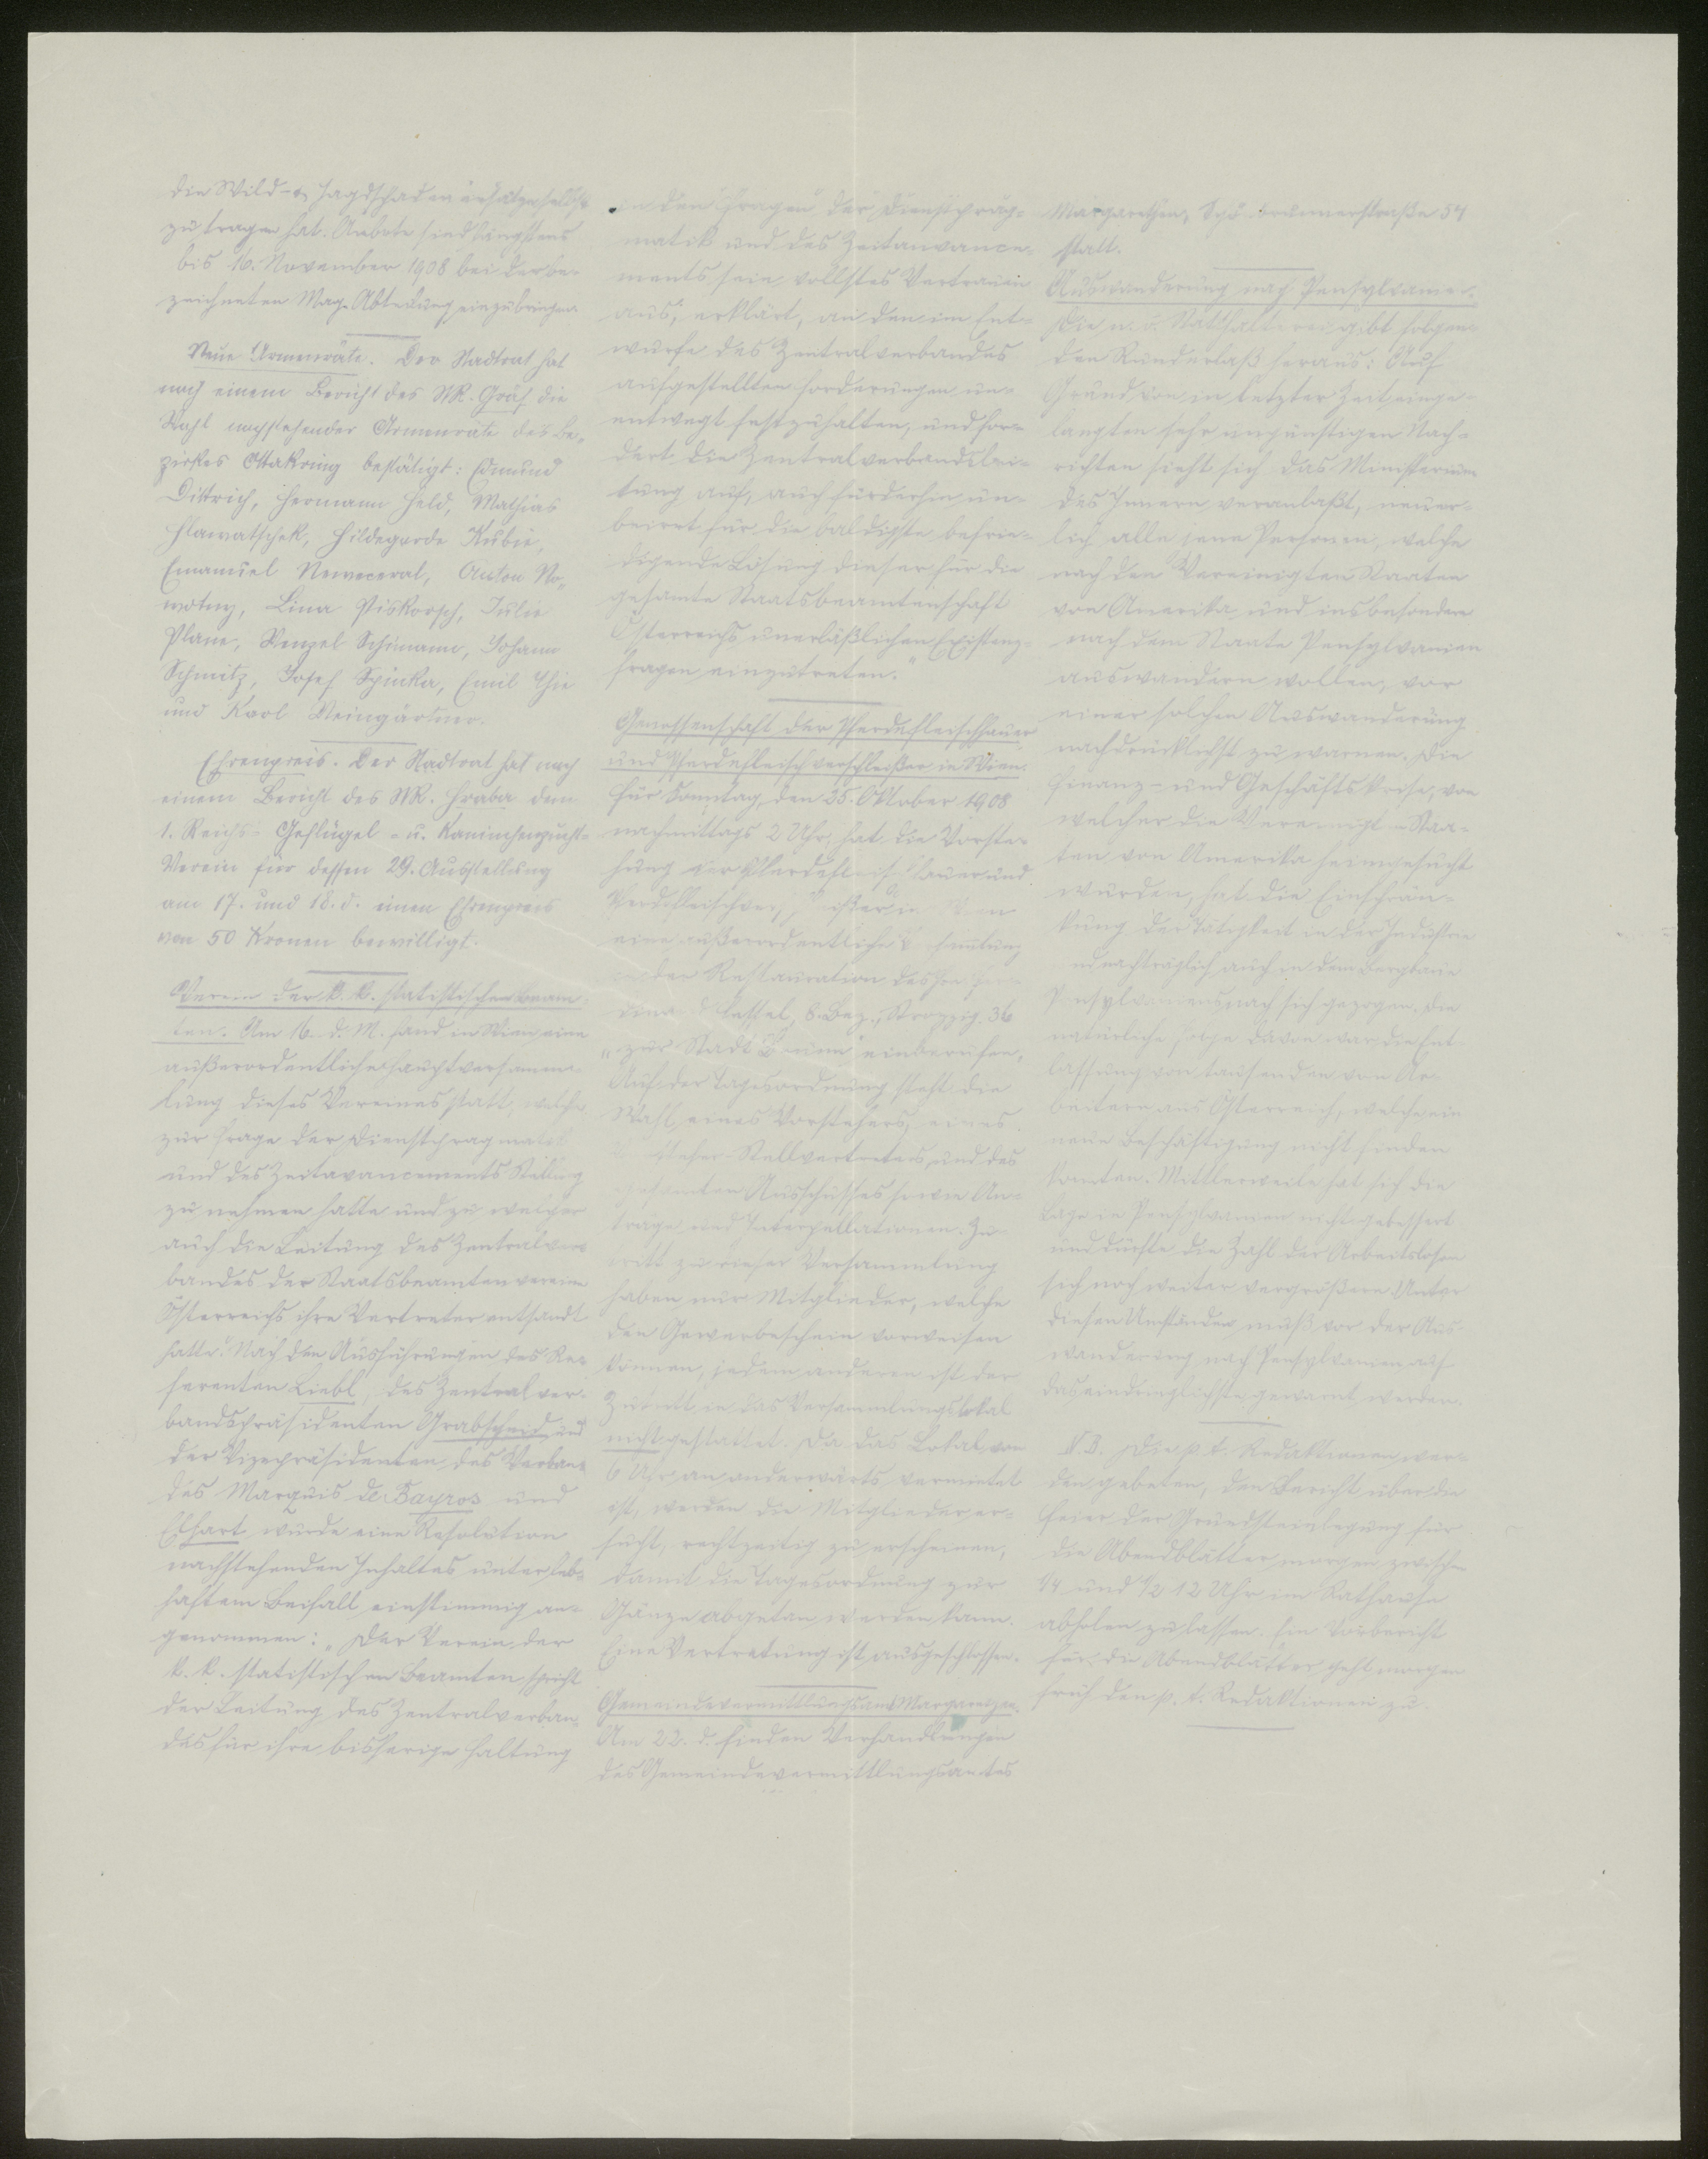 die Wild- u. Jagdschadenersätze selbst
zu tragen hat. Anbote sind längstens
bis 16. November 1908 bei der be-
zeichneten Mag. Abteilung einzubringen.
Neue Armenräte. Der Stadtrat hat
nach einem Bericht des StR. Gräf die
Wahl nachstehender Armenräte des Be-
zirkes Ottakring bestätigt: Edmund
Dittrich, Hermann Held, Mathias
Hlawatschek, Hildegarde Kubie,
Emanuel Neweceral, Anton No-
wotny, Lina Piskorsch, Julie
Plane, Wenzel Schimann, Johann
Schmitz, Josef Spinka, Emil Thie
und Karl Weingärtner.
Ehrenpreis. Der Stadtrat hat nach
einem Bericht des StR. Hraba dem
1. Reichs- Geflügel- u. Kaninchenzucht-
Verein für dessen 29. Ausstellung
am 17. und 18. d. einen Ehrenpreis
von 50 Kronen bewilligt.
Verein der k. k. statistischen Beam-
ten. Am 16. d. M. fand in Wien eine
außerordentliche Hauptversamm-
lung dieses Vereines statt, welche
zur Frage der Dienstpragmatik
und des Zeitavancements Stellung
zu nehmen hatte und zu welcher
auch die Leitung des Zentralver-
bandes der Staatsbeamtenvereine
Österreichs ihre Vertreter entsandt
hatte. Nach den Ausführungen des Re-
ferenten Liebl, des Zentralver-
bandspräsidenten Grabscheid und
der Vizepräsidenten des Verban-
des Marquis de Bayros und
Elhart wurde eine Resolution
nachstehenden Inhaltes unter leb-
haftem Beifall einstimmig an-
genommen: „Der Verein der
k. k. statistischen Beamten spricht
der Leitung des Zentralverban-
des für ihre bisherige Haltung
in den Fragen der Dienstprag-
matik und des Zeitavance-
ments sein vollstes Vertrauen
aus, erklärt, an den im Ent-
wurfe des Zentralverbandes
aufgestellten Forderungen un-
entwegt festzuhalten, und for-
dert die Zentralverbandslei-
tung auf, auch fürderhin un-
beirrt für die baldigste befrie-
digende Lösung dieser für die
gesamte Staatsbeamtenschaft
Österreichs unerläßlichen Existenz-
fragen einzutreten."
Genossenschaft der Pferdefleischhauer
und Pferdefleischverschleißer in Wien.
Für Sonntag, den 25. Oktober 1908
nachmittags 2 Uhr, hat die Vorste-
hung der Pferdefleischhauer und
Pferdefleischverschleißer in Wien
eine außerordentliche Versammlung
in der Restauration des Herrn Fer-
dinand Cassel, 8. Bez., Strozzig. 36
„zur Stadt Brünn" einberufen.
Auf der Tagesordnung steht die
Wahl eines Vorstehers, eines
Vorsteher-Stellvertreters und des
gesamten Ausschusses sowie An-
träge und Interpellationen. Zu-
tritt zu dieser Versammlung
haben nur Mitglieder, welche
den Gewerbeschein vorweisen
können, jedem anderen ist der
Zutritt in das Versammlungslokal
nicht gestattet. Da das Lokal von
6 Uhr an anderwärts vermietet
ist, werden die Mitglieder er-
sucht, rechtzeitig zu erscheinen,
damit die Tagesordnung zur
Gänze abgetan werden kann.
Eine Vertretung ist ausgeschlossen.
Gemeindevermittlungsamt Margareten.
Am 22. d. finden Verhandlungen
des Gemeindevermittlungsamtes
Margarethen, Schönbrunnerstraße 54
statt.
Auswanderung nach Pensylvanien.
Die n. ö. Statthalterei gibt folgen-
den Runderlaß heraus: Auf
Grund von in letzter Zeit einge-
langten sehr ungünstigen Nach-
richten sieht sich das Ministerium
des Innern veranlaßt, neuer-
lich alle jene Personen, welche
nach den Vereinigten Staaten
von Amerika und insbesondere
nach dem Staate Pensylvanien
auswandern wollen, vor
einer solchen Auswanderung
nachdrücklichst zu warnen. Die
Finanz- und Geschäftskrise, von
welcher die Vereinigten Staa-
ten von Amerika heimgesucht
wurden, hat die Einschrän-
kung der Tätigkeit in der Industrie
und nachträglich auch in dem Bergbaue
Pensylvaniens nach sich gezogen. Die
natürliche Folge davon war die Ent-
lassung von tausenden von Ar-
beitern aus Österreich, welche ein
neue Beschäftigung nicht finden
konnten. Mittlerweile hat sich die
Lage in Pensylvanien nicht gebessert
und dürfte die Zahl der Arbeitslosen
sich noch weiter vergrößern. Unter
diesen Umständen muß vor der Aus-
wanderung nach Pensylvanien auf
das eindringlichste gewarnt werden.
N. B. Die p. t. Redaktionen wer-
den gebeten, den Bericht über die
Feier der Grundsteinlegung für
die Abendblätter morgen zwischen
1/4 und 1/2 12 Uhr im Rathause
abholen zu lassen. Ein Vorbericht
für die Abendblätter geht morgen
früh den p. t. Redaktionen zu.